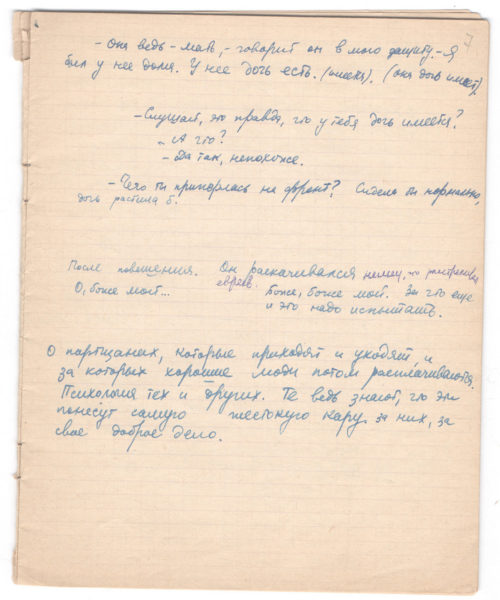 7
- Она ведь - мать, - говорит он в мою защиту. - Я
был у нее дома. У нее дочь есть. (имеет). (она дочь имеет)
- Слушай, это правда, что у тебя дочь имеется?
- А что?
- Да так, непохоже.
- Чего ты приперлась на фронт? Сидела бы нормально,
дочь растила б.
После повешения. Он раскачивался немец, что расстреливал
евреев.
О, боже мой... Боже, боже мой. За что еще
и это надо испытать.
О партизанах, которые приходят и уходят, и
за которых хорошие люди потом расплачиваются.
Психология тех и других. Те ведь знают, что эти
понесут самую жестокую кару за них, за
свое доброе дело.